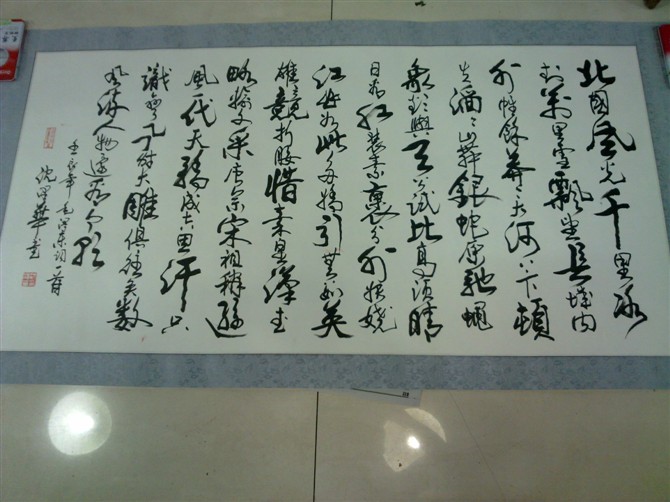 北國風光千里冰
封萬里雪飄望長城内
外惟餘莽〻大河上下頓
失滔〻山舞銀蛇原馳蠟
象欲與天公試比高須晴
日看紅裝素裹分外妖嬈
江山如此多嬌引無數英
雄競折腰惜秦皇漢武
略輸文采唐宗宋祖稍遜
風一代天驕成吉思汗只
識彎弓射大雕俱往矣數
風流人物還看今朝
壬辰年毛澤東詞一首
沈華書